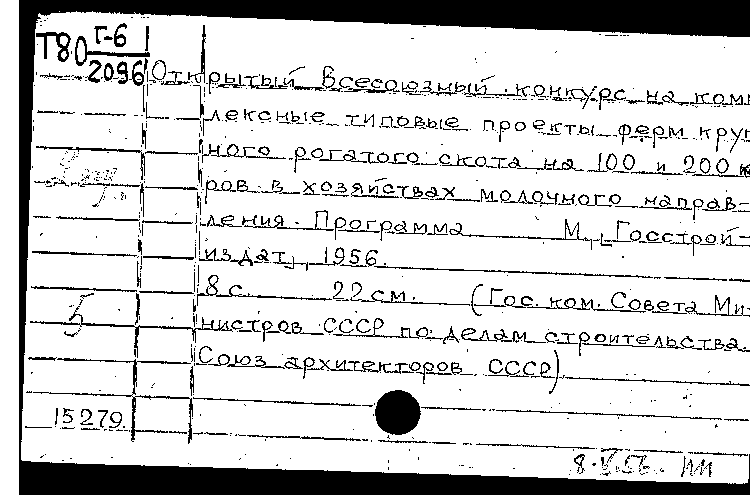 Т80 Г-6
2096
Открытый Всесоюзный конкурс на комп
лексные типовые проекты ферм круп
ного рогатого скота на 100 и 200 к
ров в хозяйствах молочного направ-
ления. Программа М., [Госстрой-
издат], 1956.
8 с. 22 см. (Гос. ком. Совета Ми-
нистров СССР по делам строительства.
Союз архитекторов СССР)
5
15279
8.V.56.